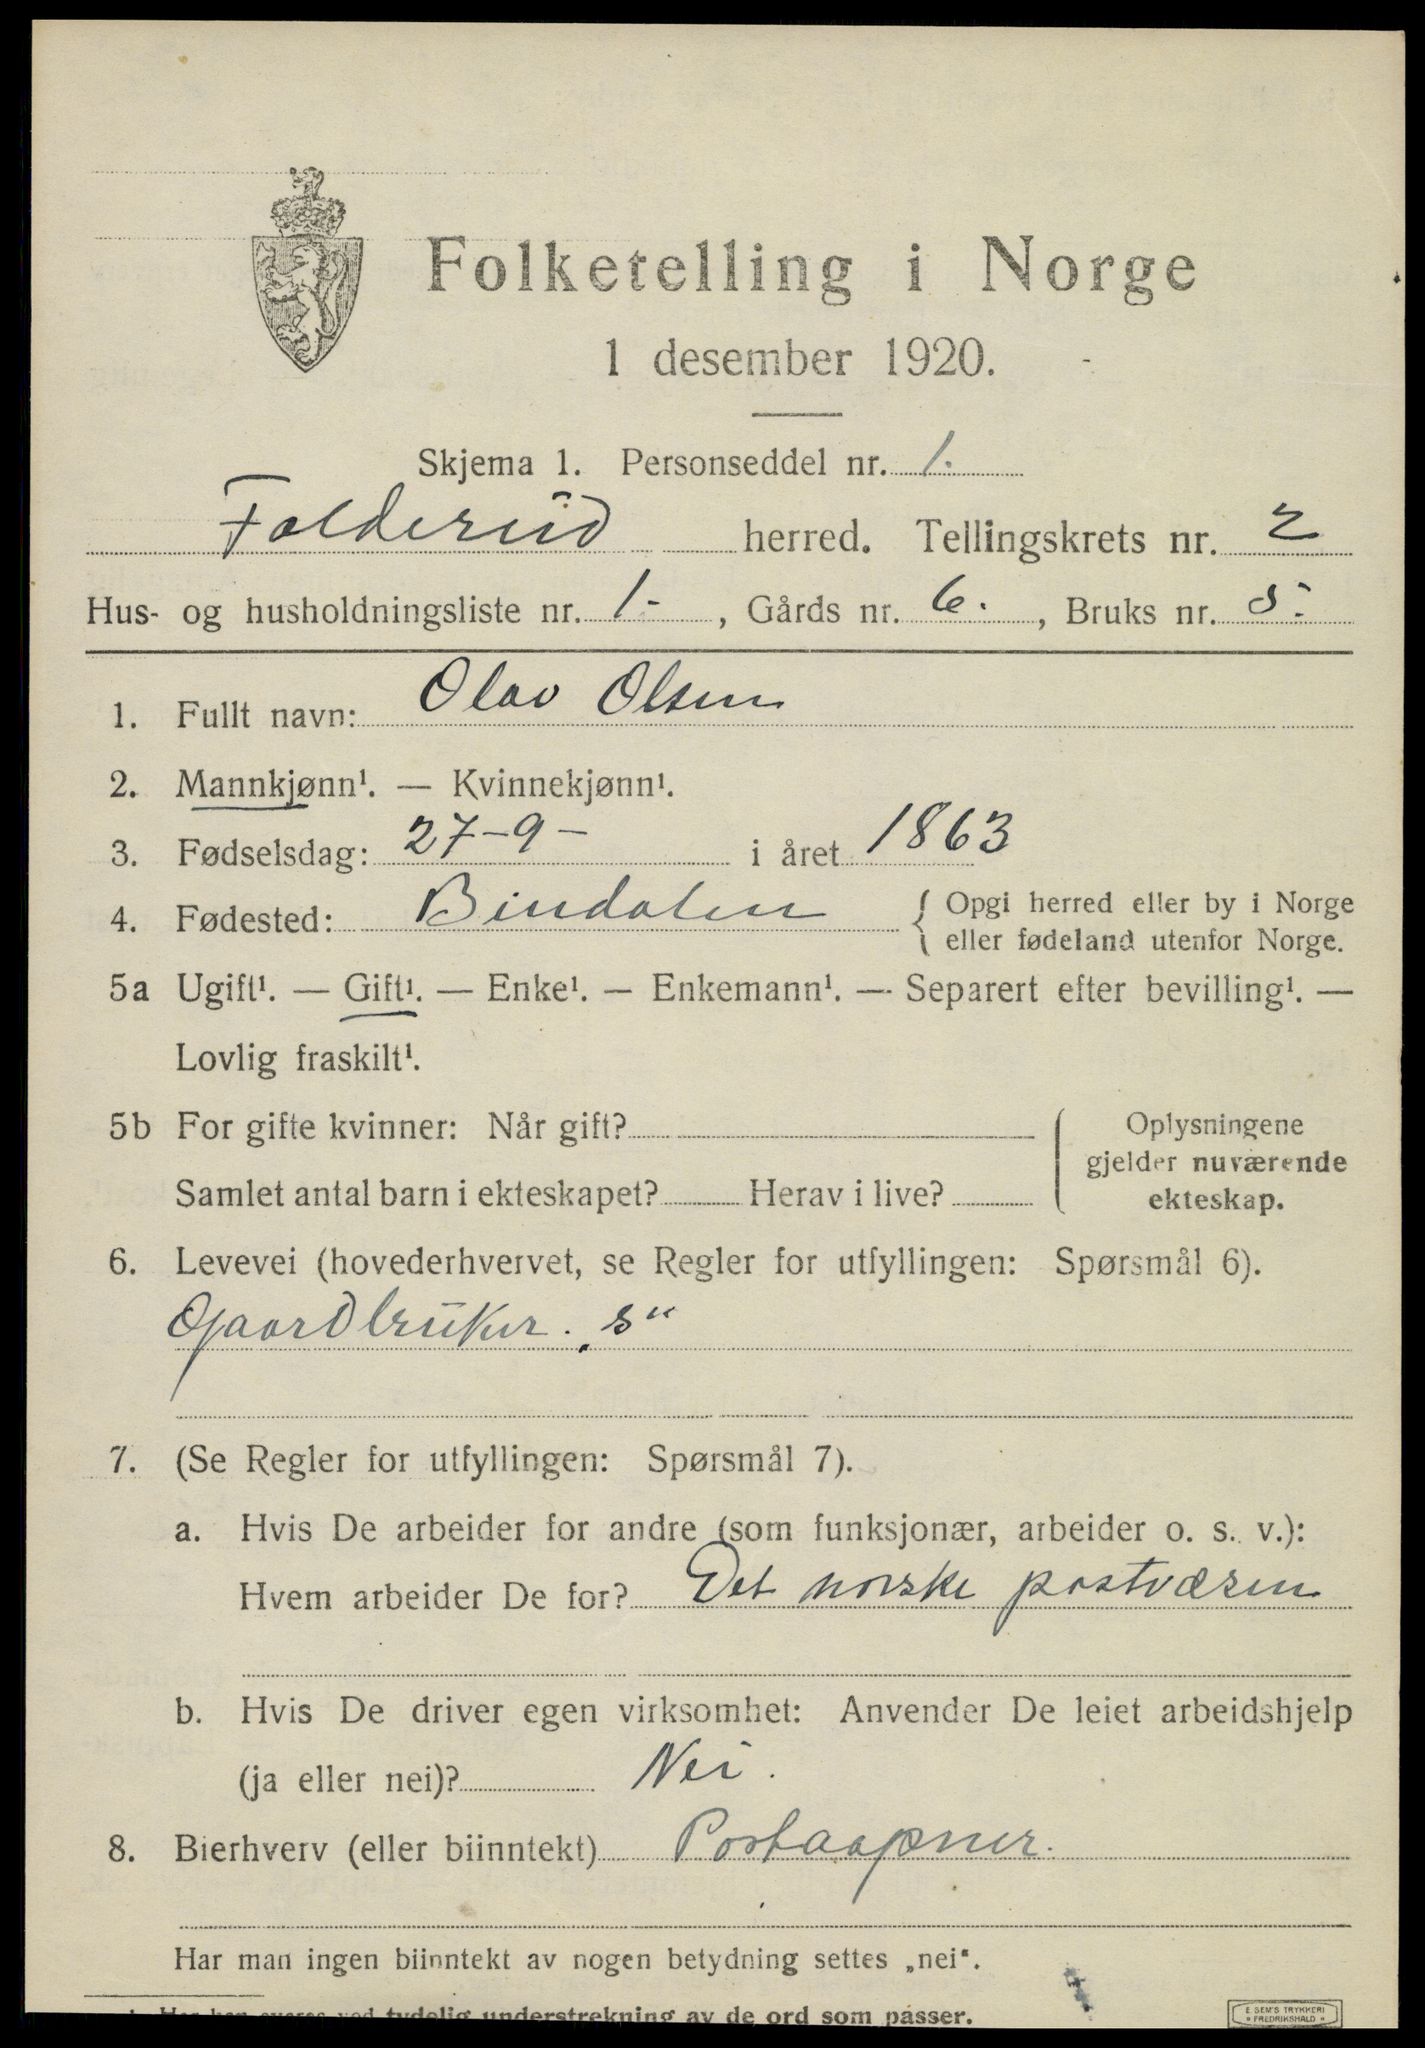 Folketelling i Norge
1 desember 1920.
Skjema 1. Personseddel nr. 1.
Foldereid herred. Tellingskrets nr. 2
Hus- og husholdningsliste nr. 1-, Gårds nr. 6., Bruks nr. 5-
1. Fullt navn: Olav Olsen
2. Mannkjønn¹. — Kvinnekjønn¹.
3. Fødselsdag: 27-9- i året 1863
4. Fødested: Bindalen { Opgi herred eller by i Norge
eller fødeland utenfor Norge.
5a Ugift¹. — Gift¹. — Enke¹. — Enkemann¹. — Separert efter bevilling¹. —
Lovlig fraskilt¹.
5b For gifte kvinner: Når gift?
Samlet antal barn i ekteskapet? Herav i live?
Oplysningene
gjelder nuværende
ekteskap.
6. Levevei (hovederhvervet, se Regler for utfyllingen: Spørsmål 6).
Gaardbruker. „s“
7. (Se Regler for utfyllingen: Spørsmål 7).
a. Hvis De arbeider for andre (som funksjonær, arbeider o. s. v.):
Hvem arbeider De for? Det norske postvæsen
b. Hvis De driver egen virksomhet: Anvender De leiet arbeidshjelp
(ja eller nei)? Nei.
8. Bierhverv (eller biinntekt) Postaapner.
Har man ingen biinntekt av nogen betydning settes „nei“.
ved tydelig understrekning av de ord som passer.
E SEM'S TRYKKERI
FREDRIKSHALD